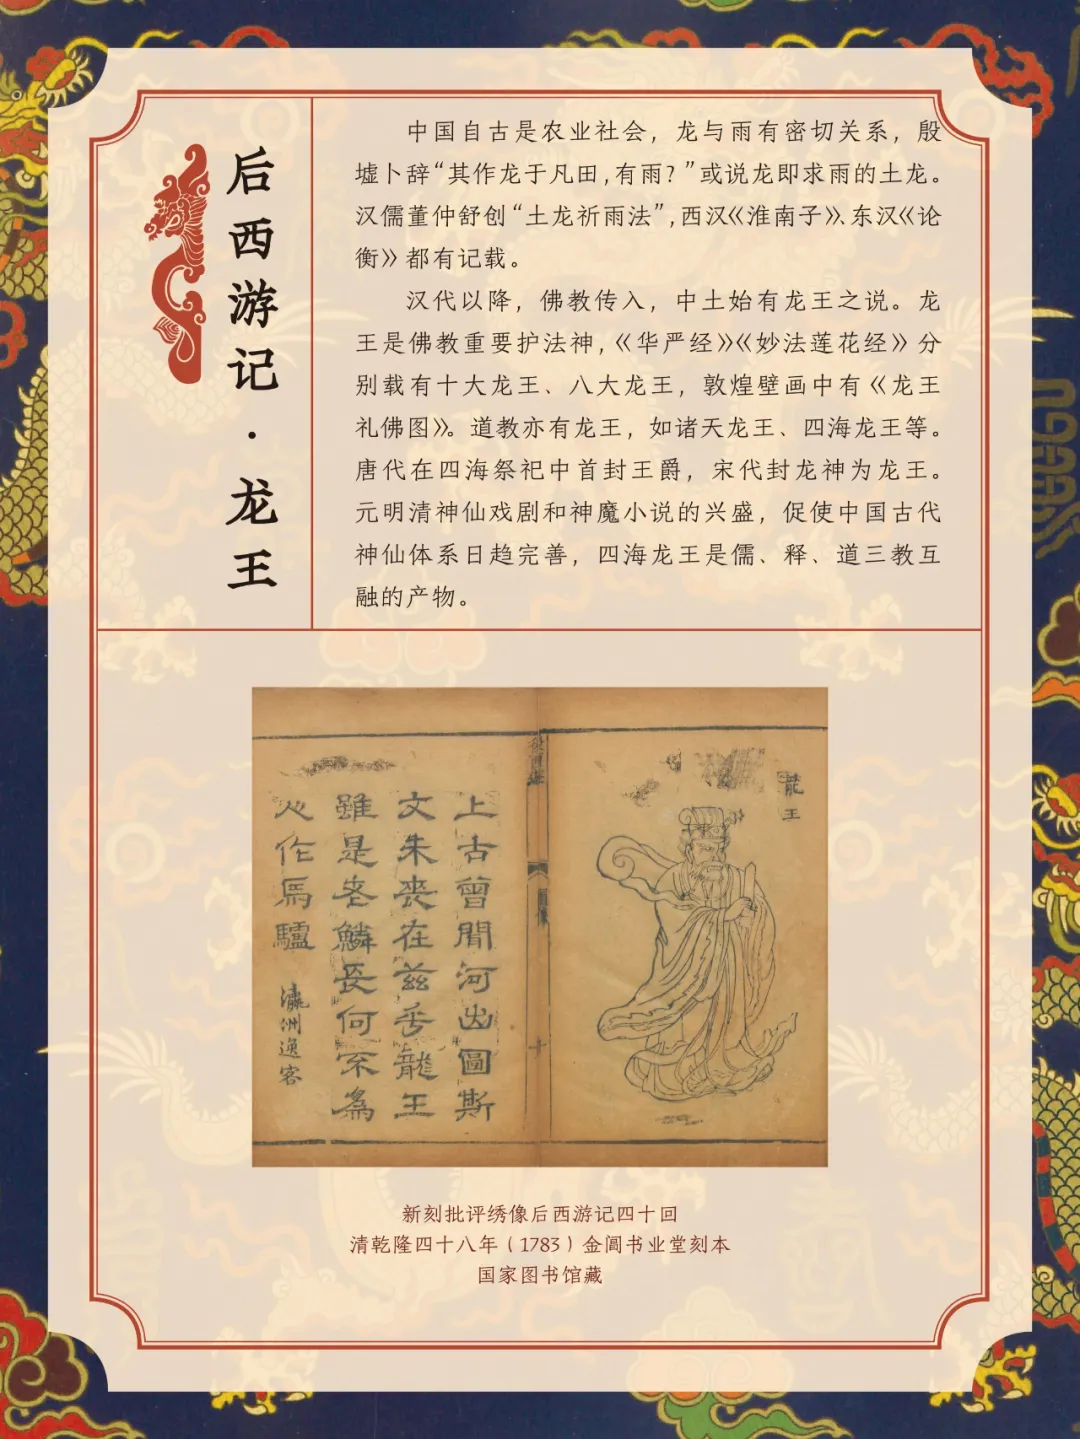 后西游记·龙王
中国自古是农业社会，龙与雨有密切关系，殷
墟卜辞“其作龙于凡田，有雨？”或说龙即求雨的土龙。
汉儒董仲舒创“土龙祈雨法”，西汉《淮南子》、东汉《论
衡》都有记载。
汉代以降，佛教传入，中土始有龙王之说。龙
王是佛教重要护法神，《华严经》《妙法莲花经》分
别载有十大龙王、八大龙王，敦煌壁画中有《龙王
礼佛图》。道教亦有龙王，如诸天龙王、四海龙王等。
唐代在四海祭祀中首封王爵，宋代封龙神为龙王。
元明清神仙戏剧和神魔小说的兴盛，促使中国古代
神仙体系日趋完善，四海龙王是儒、释、道三教互
融的产物。
龍王
上古曾聞河出圖斯
文未喪在茲乎龍王
雖是老鱗長何不爲
心作馬驢
瀛洲逸客
十
新刻批评绣像后西游记四十回
清乾隆四十八年（1783）金阊书业堂刻本
国家图书馆藏